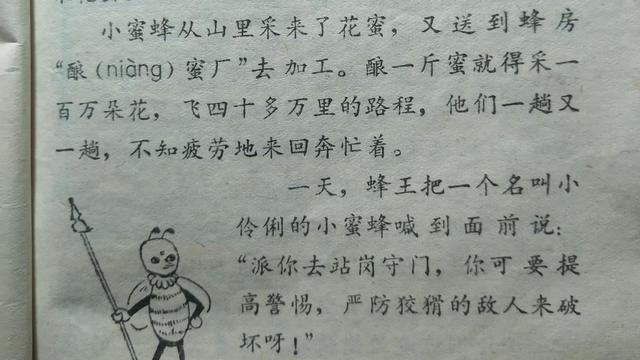 小蜜蜂从山里采来了花蜜，又送到蜂房
“酿（niàng）蜜厂”去加工。酿一斤蜜就得采一
百万朵花，飞四十多万里的路程，他们一趟又
一趟，不知疲劳地来回奔忙着。
一天，蜂王把一个名叫小
伶俐的小蜜蜂喊到面前说：
“派你去站岗守门，你可要提
高警惕，严防狡猾的敌人来破
坏呀！”